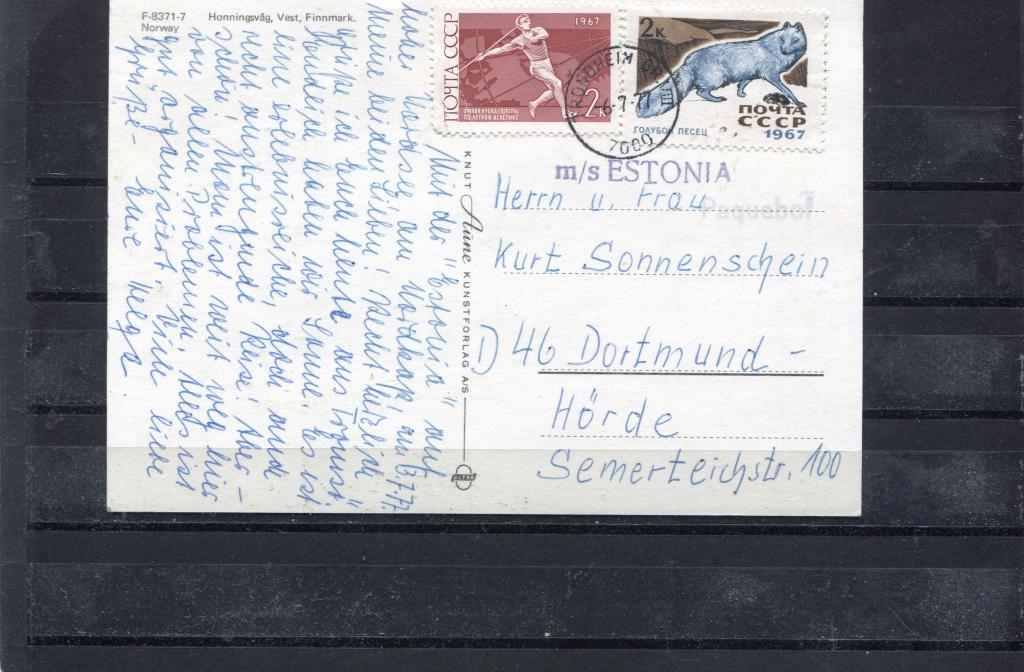 F-8371-7 Honningsvåg, Vest, Finnmark.
Norway
Mit der "Estonia" auf
hoher Nordsee, am Nordkap, am 6.7.77.
Meine lieben Lieben! Recht herzlich
grüße ich Euch heute aus
haben wir Sonne. Es ist
eine erlebnisreiche, doch auch
recht anstrengende Reise! Aber
schön! Man ist weit weg hier
von allen Problemen. Alles ist
gut organisiert. Viele liebe
Grüße - Eure Helga.
KNUT Aune KUNSTFORLAG A/S
ПОЧТА СССР
1967
ФИНАЛ КУБКА ЕВРОПЫ
ПО ЛЕГКОЙ АТЛЕТИКЕ
2к
2к
ГОЛУБОЙ ПЕСЕЦ
ПОЧТА
СССР
1967
TRONDHEIM
6-7-77
7000
m/s ESTONIA
Paquebot
Herrn u. Frau
Kurt Sonnenschein
D 46 Dortmund -
Hörde
Semerteichstr. 100